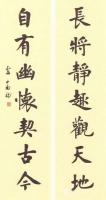 長將靜趣觀天地
自有幽懷契古今